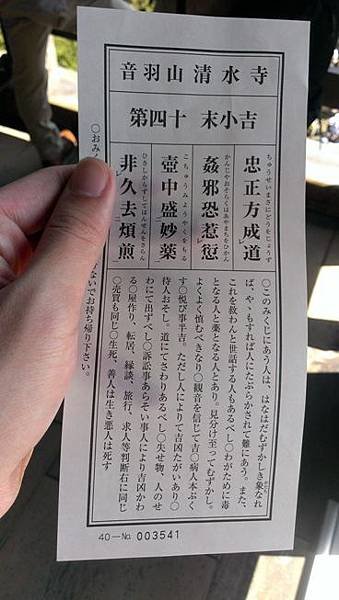 音羽山清水寺
第四十 末小吉
忠正方成道
ちゅうせいまさにどうをじょうず
姦邪恐惹愆
かんじゃおそらくはあやまちをひかん
壺中盛妙薬
こちゅうみょうやくをもる
非久去煩煎
ひさしからずしてはんせんをさらん
〇このみくじにあう人は、はなはだむずかしき象なれ
ば、やゝもすれば人にたぶらかされて難にあう。また、
これを救わんと世話する人もあるべし〇わがために毒
となる人と薬となる人とあり。見分け至ってむずかし。
よくよく慎むべきなり〇観音を信じて吉〇病人本ぷく
す〇悦び事半吉。ただし人によりて吉凶たがいあり〇
待人おそし。道にてさわりあるべし〇失せ物、人のせ
わにて出ずべし〇訴訟事あらそい事人により吉凶かわ
る〇屋作り、転居、縁談、旅行、求人等判断右に同じ
〇売買も同じ〇生死、善人は生き悪人は死す
〇おみく
ないでお持ち帰り下さい。
40—No. 003541